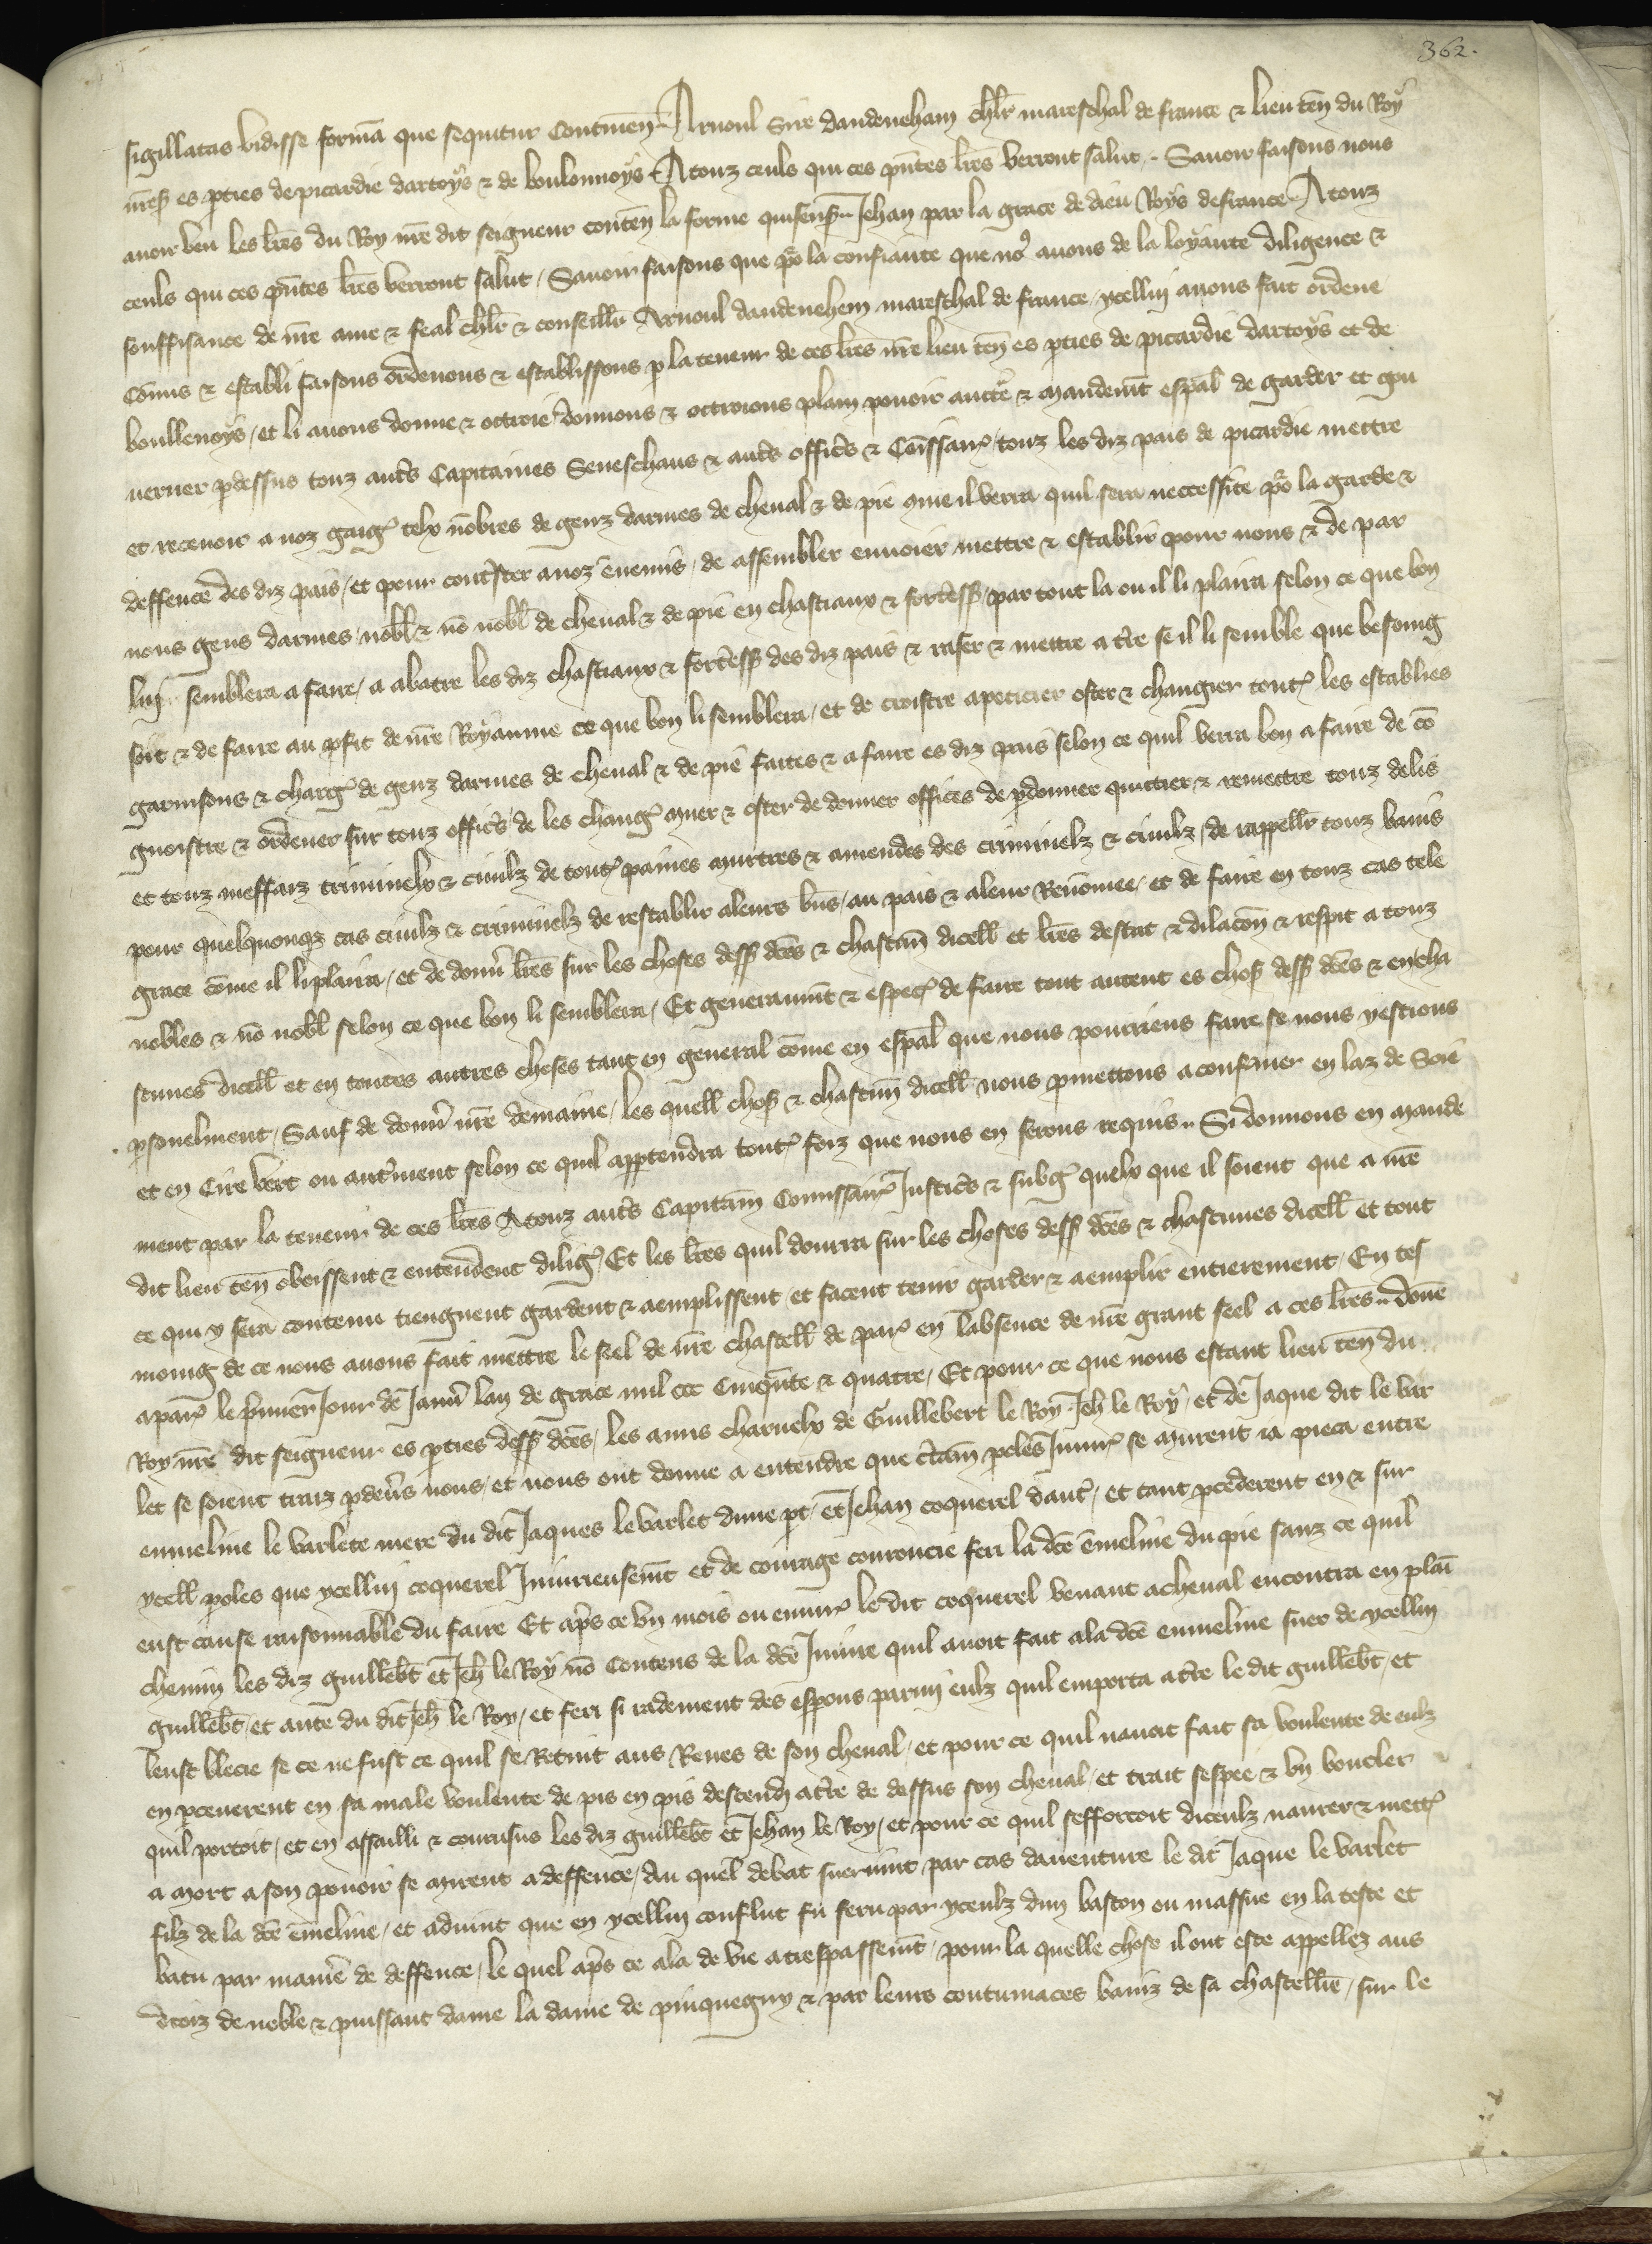 362.
sigillatas vidisse formā que sequitur Continen̄. Arnoul Sire dandeneham chlr̄ mareschal de france & lieu ten̄ du Roy
nr̄eẜ es p̱ties de picardie dartoys & de boulonnoys A touz ceuls qui ces pn̄tes lr̄es verront salut. Sauoir faisons nous
auoir veu les lr̄es du Roy nr̄e dit seigneur conten̄ la forme qui senẜ. Jehan par la grace de dieu Roys de france A touz
ceuls qui ces pn̄tes lr̄es verront salut, Sauoir faisons que po᷒ la confiance que no᷒ auons de la loyaute diligence &
souffisance de nr̄e ame & feal chlr̄ & conseillr̄ Arnoul dandenehem mareschal de france, ycellui auons fait ordene
Cōmis & establi faisons ordenons & establissons p̱ la teneur de ces lr̄es nr̄e lieu ten̄ es p̱ties de picardie dartoys et de
boullenoys, et li auons donne & octroie donnons & octroions plain pouoir aucte᷒ & mandemt̄ esp̄al de garder et gou
uerner p̱dessus touz aut̄s Capitaines Seneschaus & aut̄s offic̄s & Cōissair᷒ touz les diz pais de picardie mettre
et receuoir a noz gaig᷒ telx nōbres de genz darmes de cheual & de pie que il verra quil sera neccessite po᷒ la garde &
deffence des diz pais, et pour cont̄ster a noz enemis, de assembler enuoier mettre & establir pour nous & de par
nous gens darmes nobl̄ & nō nobl̄ de cheual & de pie en chastiaux & fort̄esẜ par tout la ou il li plaira selon ce que bon
lui semblera a faire, a abatre les diz chastiaux & fort̄esẜ des diz pais & raser & mettre a t̄re se il li semble que besoing
soit & de faire au p̱fit de nr̄e Royaume ce que bon li semblera, et de croistre apeticier oster & changier tout᷒ les establies
garnisons & charg᷒ de genz darmes de cheual & de pie faites & a faire es diz pais selon ce quil verra bon a faire de cō
gnoistre & ordener sur touz offic̄s de les chang᷒ muer & oster de donner offices de p̱donner quittier & remettre touz delis
et touz meffaiz criminelx & ciuilz de tout᷒ paines murtres & amendes des criminelz & ciuilz, de rappellr̄ touz banis
pour quelquonqz cas ciuilz & criminelz de restablir a leurs bn̄s, au pais & a leur Renōmee, et de faire en touz cas tele
grace cōme il li plaira, et de donn̄ lr̄es sur les choses desẜ dc̄es & chascun̄ dicell̄ et lr̄es destat & dilacōn & respit a touz
nobles & nō nobl̄ selon ce que bon li semblera, Et generaumt̄ & espec᷒ de faire tout autent es choẜ desẜ dc̄es & en cha
scunes dicell̄ et en toutes autres choses tant en general cōme en esp̄al que nous pourriens faire se nous yestions
p̱sonelment, Sauf de donn̄ nr̄e demaine, les quell̄ choẜ & chascun̄ dicell̄ nous p̱mettons a confirmer en laz de Soie
et en Cire vert ou aut̄ment selon ce quil app̱tendra tout᷒ foiz que nous en serons requis. Si donnons en mande
ment par la teneur de ces lr̄es A touz aut̄s Capitain̄ Cōmissair᷒ Justic̄s & subg᷒ quelx que il soient que a nr̄e
dit lieu ten̄ obeissent & entendent dilig᷒ Et les lr̄es quil donrra sur les choses desẜ dc̄es & chascunes dicell̄ et tout
ce qui y sera contenu tiengnent gardent & aemplissent et facent tenir garder & aemplir entierement, En tes
moing de ce nous auons fait mettre le seel de nr̄e chastell̄ de par᷒ en labsence de nr̄e grant seel a ces lr̄es. Dōne
a par᷒ le p̄mier Jour de Januī lan de grace mil ccc Cinqn̄te & quatre, Et pour ce que nous estant lieu ten̄ du
Roy nr̄e dit seigneur es p̱ties desẜ dc̄es, les amis charnelx de Guillebert le Roy Jeh̄ le Roy, et de Jaque dit le var
let se soient traiz p̱deūs nous, et nous ont donne a entendre que c̄tain̄ p̱oles Iniur᷒ se murent ia pieca entre
emmeline le varlete mere du dit Jaques le varlet dune pt̄ et Jehan coquerel dautr᷒, et tant p̱cederent en & sur
ycell̄ p̱oles que ycellui coquerel Iniurieusemt̄ et de courage courroucie feri la dc̄e ēmeline du pie sanz ce quil
eust cause raisonnable du faire Et ap̄s ce vn mois ou enuir᷒ le dit coquerel venant a cheual encontra en plaī
chemin les diz guillebt̄ et Jeh̄ le Roy nō Contens de la dc̄e Iniure quil auoit fait a la dc̄e emmeline suer de ycellui
guillebt̄, et ante du dit Jeh̄ le Roy, et feri si radement des esperons parmi eulz quil emporta a t̄re le dit guillebt̄, et
leust blecie se ce ne fust ce quil se Retint aus Renes de son cheual, et pour ce quil nauoit fait sa voulente de eulz
en p̱ceuerent en sa male voulente de pis en pis descendi a t̄re de dessus son cheual, et trait sespee & vn boucler
quil portoit, et en assailli & courusus les diz guillebt̄ et Jehan le Roy, et pour ce quil sefforcoit diceulz naurer & mett᷒
a mort a son pouoir se mirent a deffence, Au quel debat suruint par cas dauenture le dit Jaque le varlet
filz de la dc̄e ēmeline, et aduint que en ycellui conflict fu feru par yceulz dun baston ou massue en la teste et
batu par manie᷒ de deffence, le quel ap̄s ce ala de vie a trespassemt̄, pour la quelle chose il ont este appellez aus
droiz de noble & puissant dame la dame de pinquegny & par leurs contumaces baniz de sa chastellīe, sur le